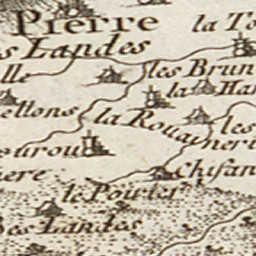 Pierre
la To
s Landes
lle
les Brun
la Har
ellons
la Rouaineri
les
ourou
ere
Chisan
le Poirier
Des Landes